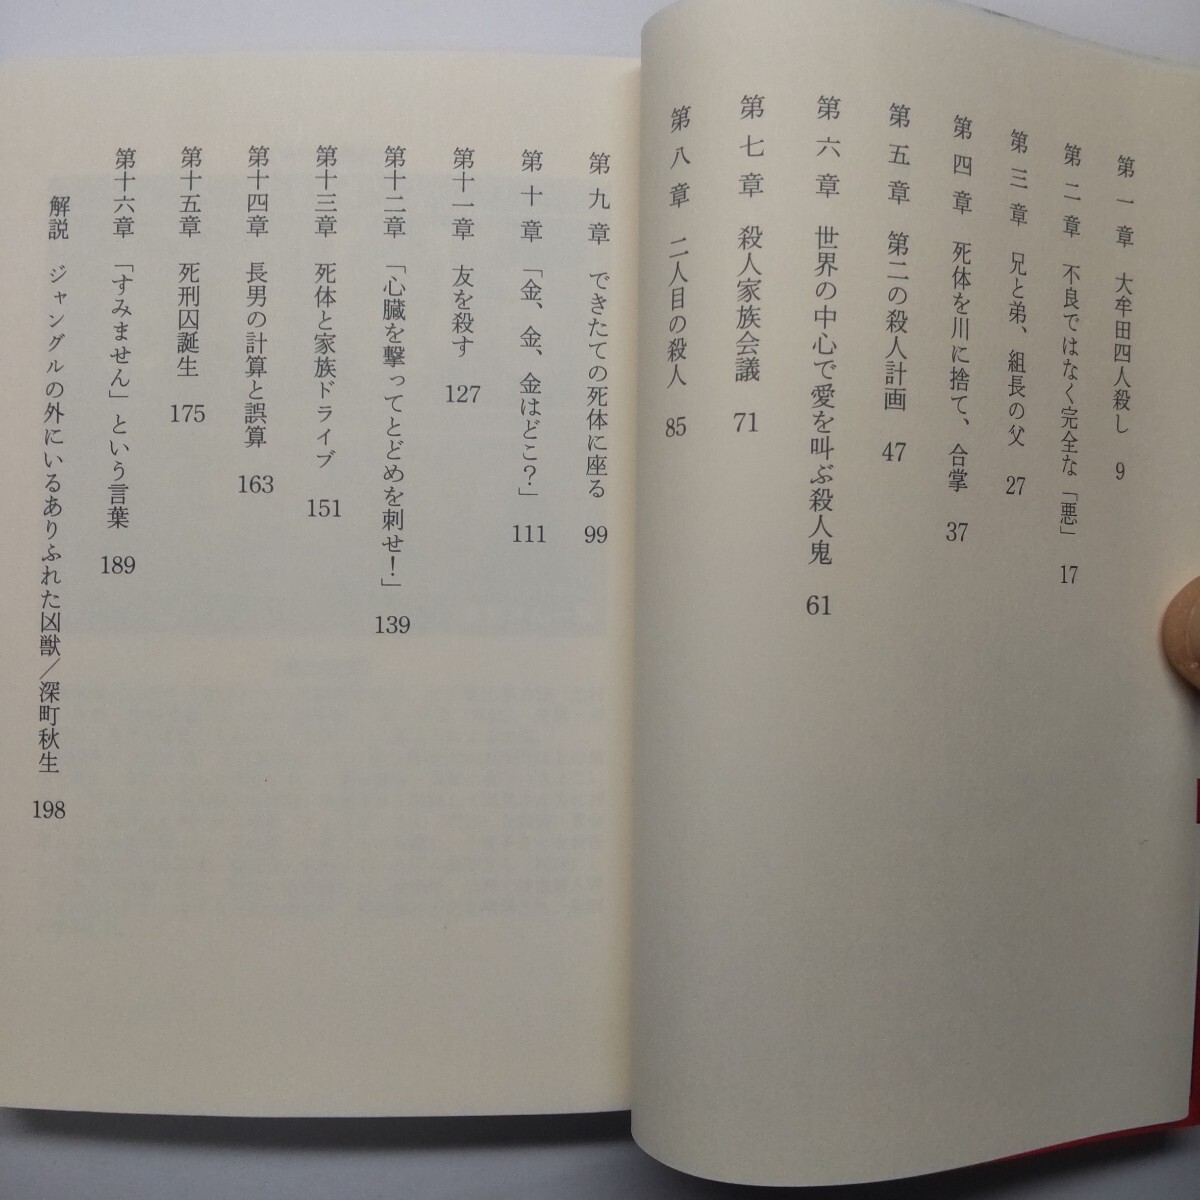 第一章　大牟田四人殺し　9
第二章　不良ではなく完全な「悪」　17
第三章　兄と弟、組長の父　27
第四章　死体を川に捨て、合掌　37
第五章　第二の殺人計画　47
第六章　世界の中心で愛を叫ぶ殺人鬼　61
第七章　殺人家族会議　71
第八章　二人目の殺人　85
第九章　できたての死体に座る　99
第十章　「金、金、金はどこ？」　111
第十一章　友を殺す　127
第十二章　「心臓を撃ってとどめを刺せ！」　139
第十三章　死体と家族ドライブ　151
第十四章　長男の計算と誤算　163
第十五章　死刑囚誕生　175
第十六章　「すみません」という言葉　189
解説　ジャングルの外にいるありふれた凶獣／深町秋生　198